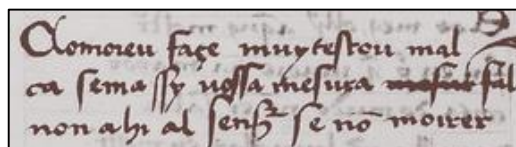 Como eu façe muyt estou mal
ca sem assy uossa mesura mesur fal
non a hi al senh̃ se nõ moirer